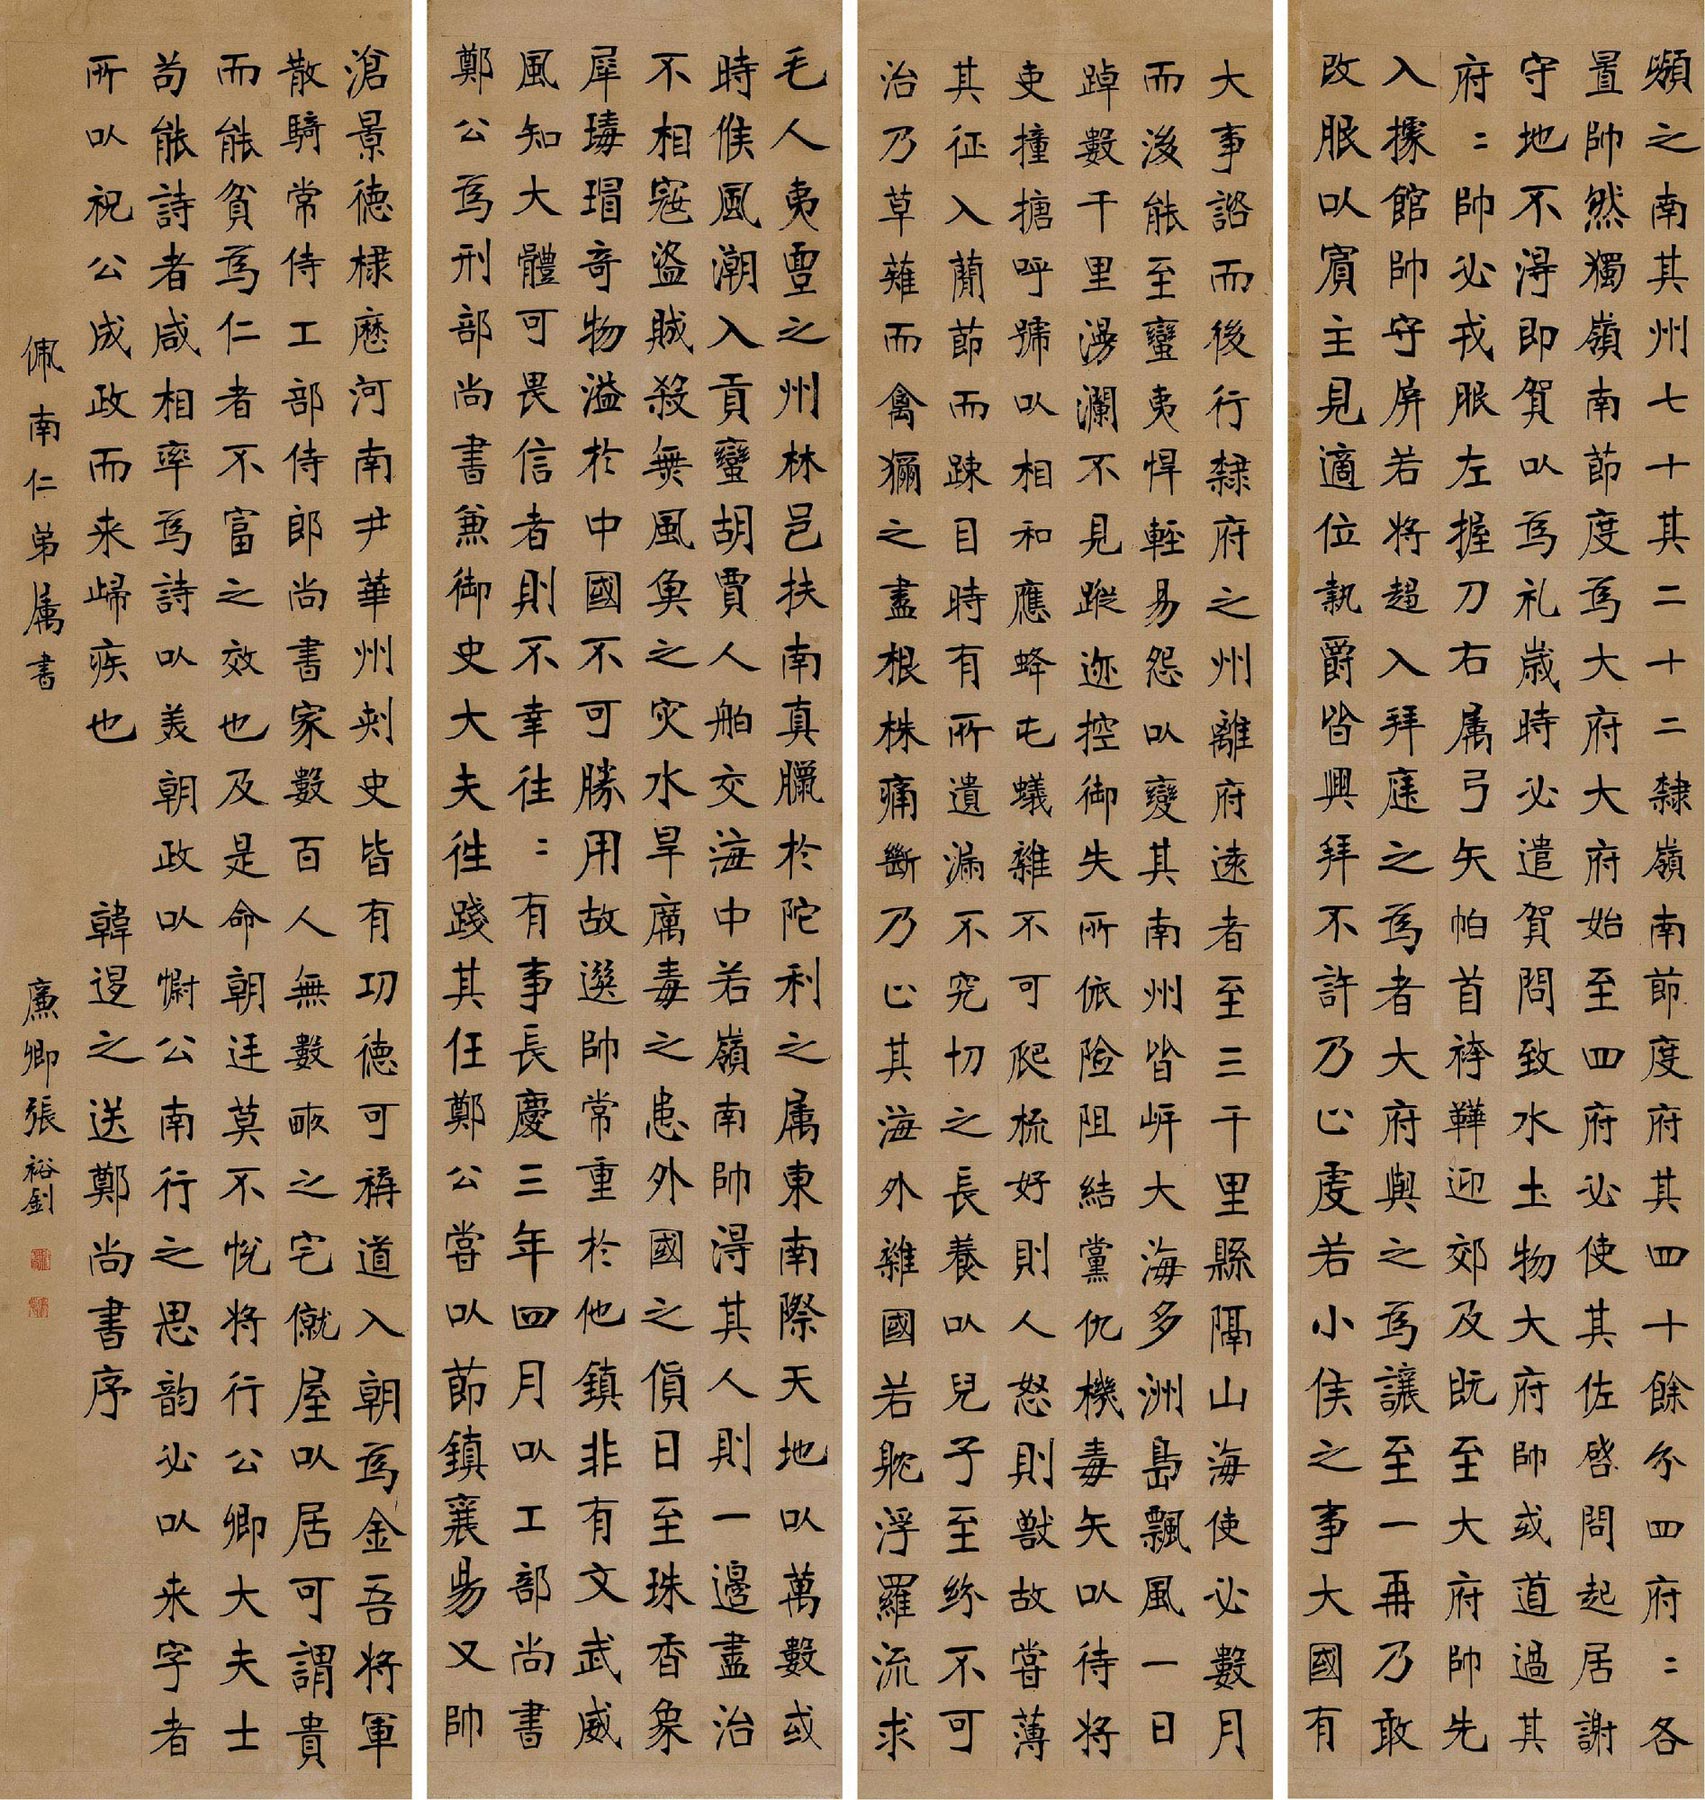 嶺之南其州七十其二十二隸嶺南節度府其四十餘分四府〻各
置帥然獨嶺南節度為大府大府始至四府必使其佐啓問起居謝
守地不得即賀以為礼歲時必遣賀問致水土物大府帥或道過其
府〻帥必戎服左握刀右属弓矢帕首袴鞾迎郊及既至大府帥先
入據館帥守屏若將趨入拜庭之為者大府與之為讓至一再乃敢
改服以賓主見適位執爵皆興拜不許乃止虔若小侯之事大國有
大事諮而後行隸府之州離府遠者至三千里縣隔山海使必數月
而後能至蠻夷悍輕易怨以變其南州皆岸大海多洲島飄風一日
踔數千里漫瀾不見蹤迹控御失所依險阻結黨仇機毒矢以待將
吏撞搪呼號以相和應蜂屯蟻雜不可爬梳好則人怒則獸故嘗薄
其征入蕳節而疎目時有所遺漏不究切之長養以兒子至紛不可
治乃草薙而禽獮之盡根株痛斷乃止其海外雜國若躭浮羅流求
毛人夷亶之州林邑扶南真臘於陀利之属東南際天地以萬數或
時候風潮入貢蠻胡賈人舶交海中若嶺南帥得其人則一邊盡治
不相寇盜賊殺無風魚之灾水旱厲毒之患外國之貨日至珠香象
犀瑇瑁奇物溢於中國不可勝用故選帥常重於他鎮非有文武威
風知大體可畏信者則不幸往〻有事長慶三年四月以工部尚書
鄭公為刑部尚書兼御史大夫往踐其任鄭公嘗以節鎮襄昜又帥
滄景德棣歷河南尹華州刺史皆有功德可稱道入朝為金吾將軍
散騎常侍工部侍郎尚書家數百人無數畝之宅僦屋以居可謂貴
而能貧為仁者不富之效也及是命朝廷莫不悅將行公卿大夫士
苟能詩者咸相率為詩以美朝政以慰公南行之思韵必以来字者
所以祝公成政而来歸疾也 韓退之送鄭尚書序
佩南仁弟属書 廉卿張裕釗